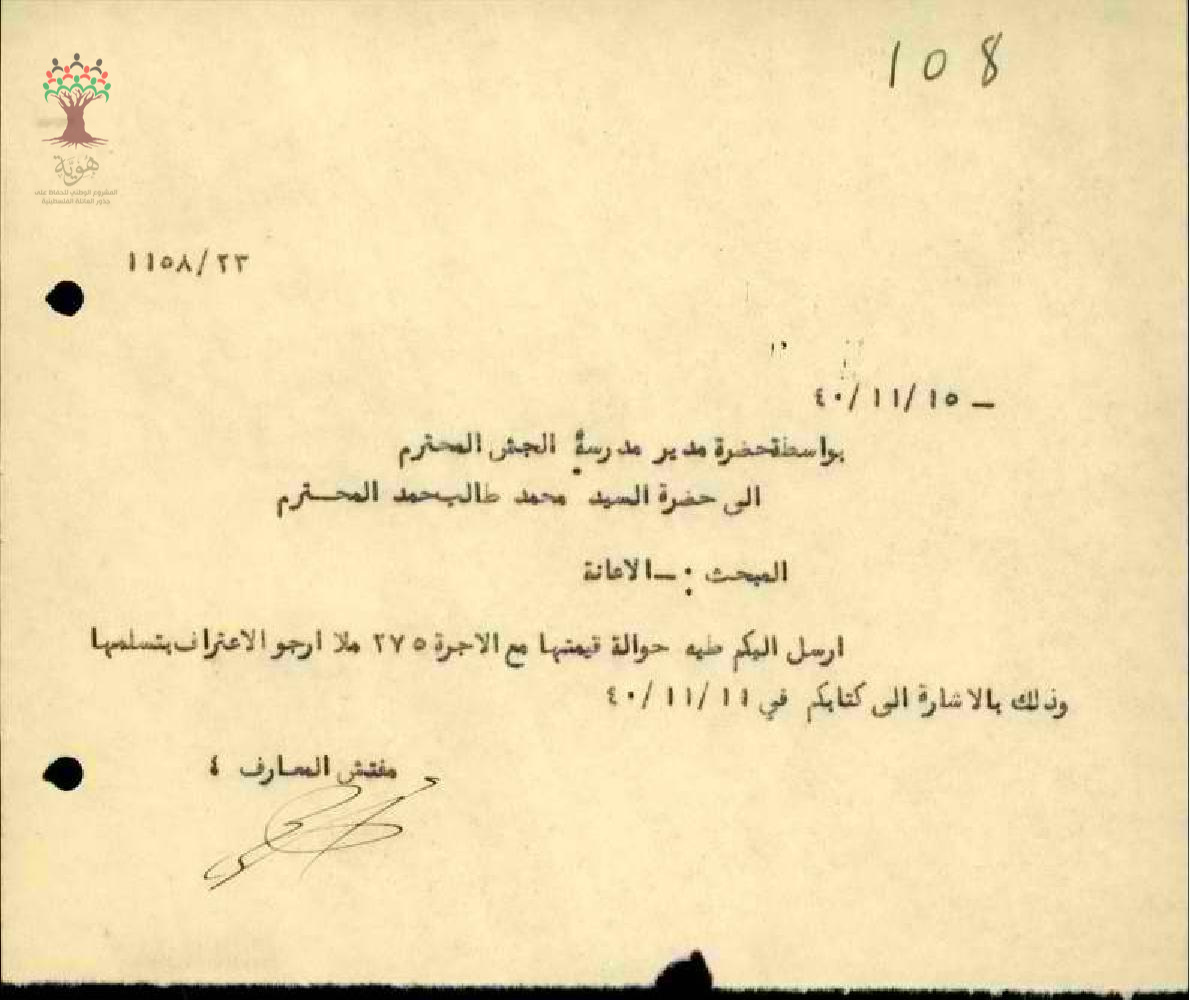 108
هوية
المشروع الوطني للحفاظ على
جذور العائلة الفلسطينية
١١٥٨/٢٣
ـ ٤٠/١١/١٥
بواسطةحضرة مدير مدرسة الجش المحترم
الى حضرة السيد محمد طالبحمد المحـترم
المبحث :ـ الاعانة
ارسل اليكم طيه حوالة قيمتها مع الاجرة ٢٧٥ ملا ارجو الاعترافبتسلمها
وذلك بالاشارة الى كتابكم في ٤٠/١١/١١
مفتش المعارف ٤